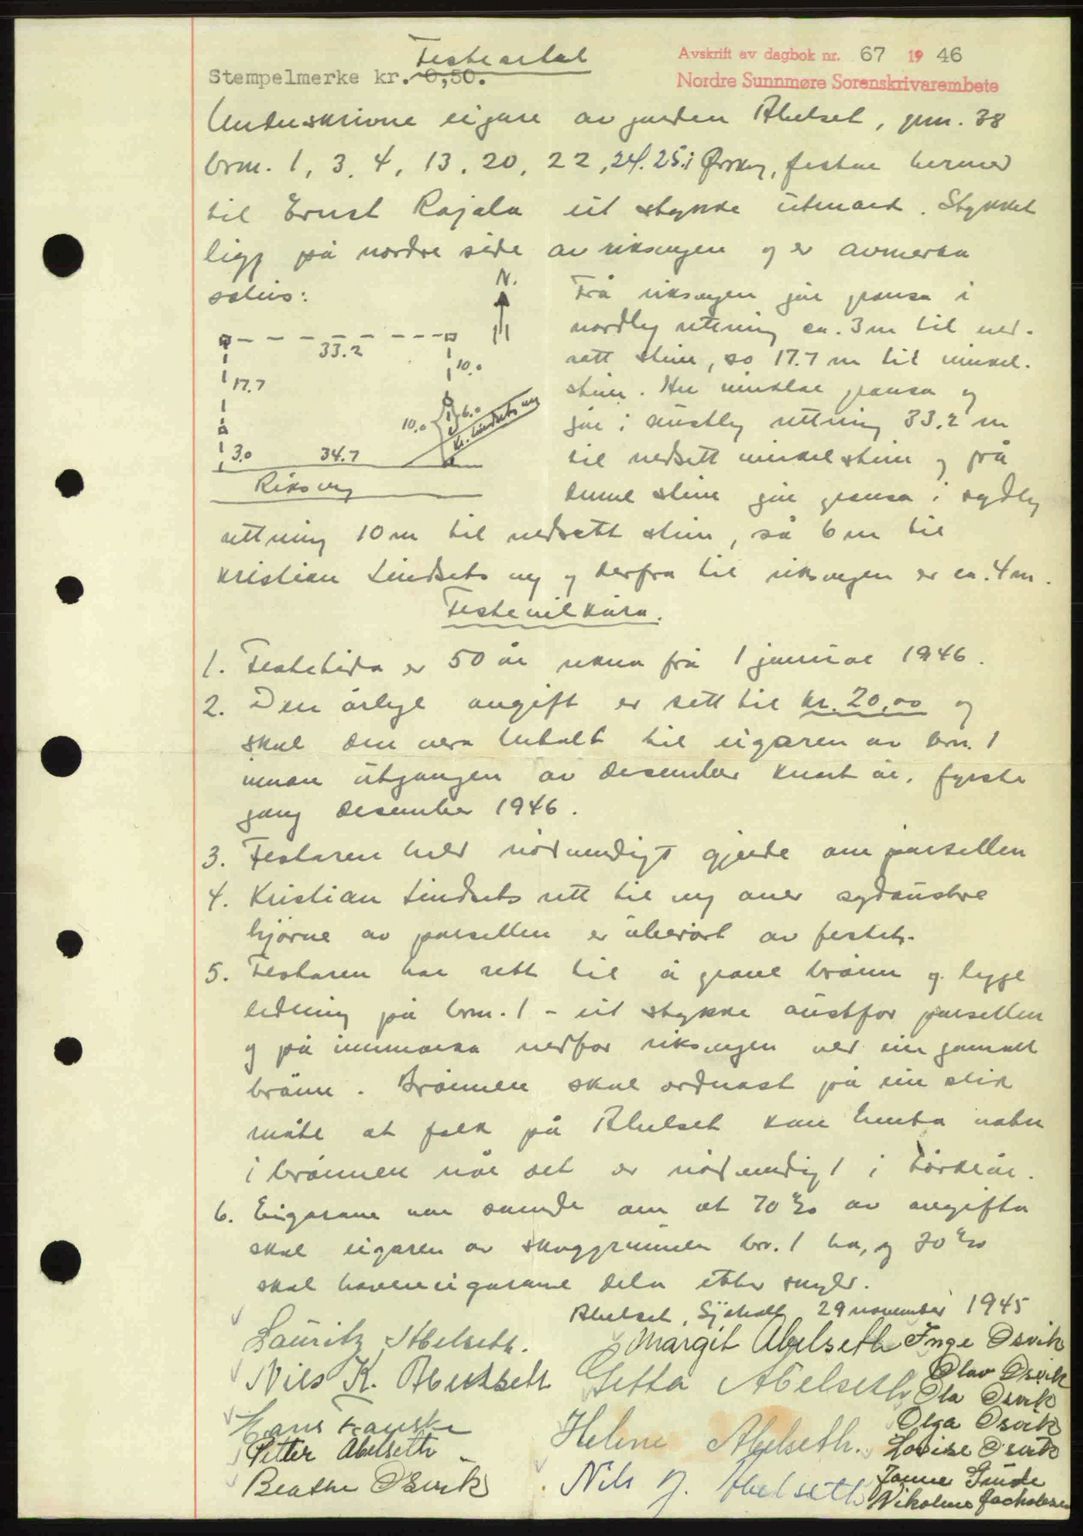 Festesetel
Avskrift av dagbok nr. 67 1946
Stempelmerke kr. 0,50.
Nordre Sunnmøre Sorenskrivarembete
Underskrivne eigare av garden Abelset, gnr. 38
brnr. 1, 3, 4, 13, 20, 22, 24, 25 i Ørskog, festar hermed
til Ernst Rajala eit stykke utmark. Stykket
ligg på nordre side av riksvegen og er avmerka
soleis:
N.
33.2
17.7
10.0
10.0
6.0
Kr. Lindsets veg
3.0
34.7
Riksveg
Frå riksvegen går grensa i
nordleg retning ca. 3 m til ned-
sett stein, so 17.7 m til vinkel-
stein. Her vinklar grensa og
går i austleg retning 33.2 m
til nedsett vinkelstein og frå
denne stein går grensa i sydleg
retning 10 m til nedsett stein, så 6 m til
Kristian Lindsets veg og derfra til riksvegen er ca. 4 m.
Festevilkåra.
1. Festetida er 50 år rekna frå 1 januar 1946.
2. Den årlege avgift er sett til kr. 20,00 og
skal den vera betalt til eigaren av brn. 1
innan utgangen av desember kvart år, fyrste
gang desember 1946.
3. Festaren held nødvendigt gjerde om parsellen
4. Kristian Lindsets rett til veg over sydaustre
hjørne av parsellen er uberørt av festet.
5. Festaren har rett til å grave brønn og legge
ledning på brnr. 1 - eit stykke austfor parsellen
og på innmarka nedfor riksvegen ved ein gamall
brønn. Brønnen skal ordnast på ein slik
måte at folk på Abelset kan henta vatn
i brønnen når det er nødvendigt i tørkeår.
6. Eigarane var samde om at 70 % av avgifta
skal eigaren av skoggrunnen br. 1 ha, og 30 %
skal hamneeigarane dela etter skyld.
Abelset, Sjøholt, 29 november 1945
Lauritz Abelseth. Margit Abelseth Inge Osvik
Nils K. Abelseth Gitta Abelseth Olav Osvik
Ola Osvik
Hans Fauske Olga Osvik
Petter Abelseth Helene Abelseth. Lovise Osvik
Beathe Osvik Nils J. Abelseth Janna Grude
Nikoline Jacobsen